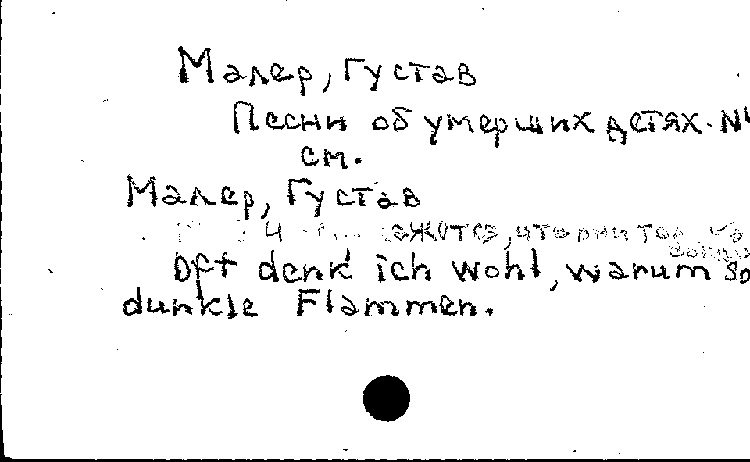 Малер, Густав
Песни об умерших детях. №
см.
Малер, Густав
кажется, что они
Oft denk' ich wohl, warum so
dunkle Flammen.